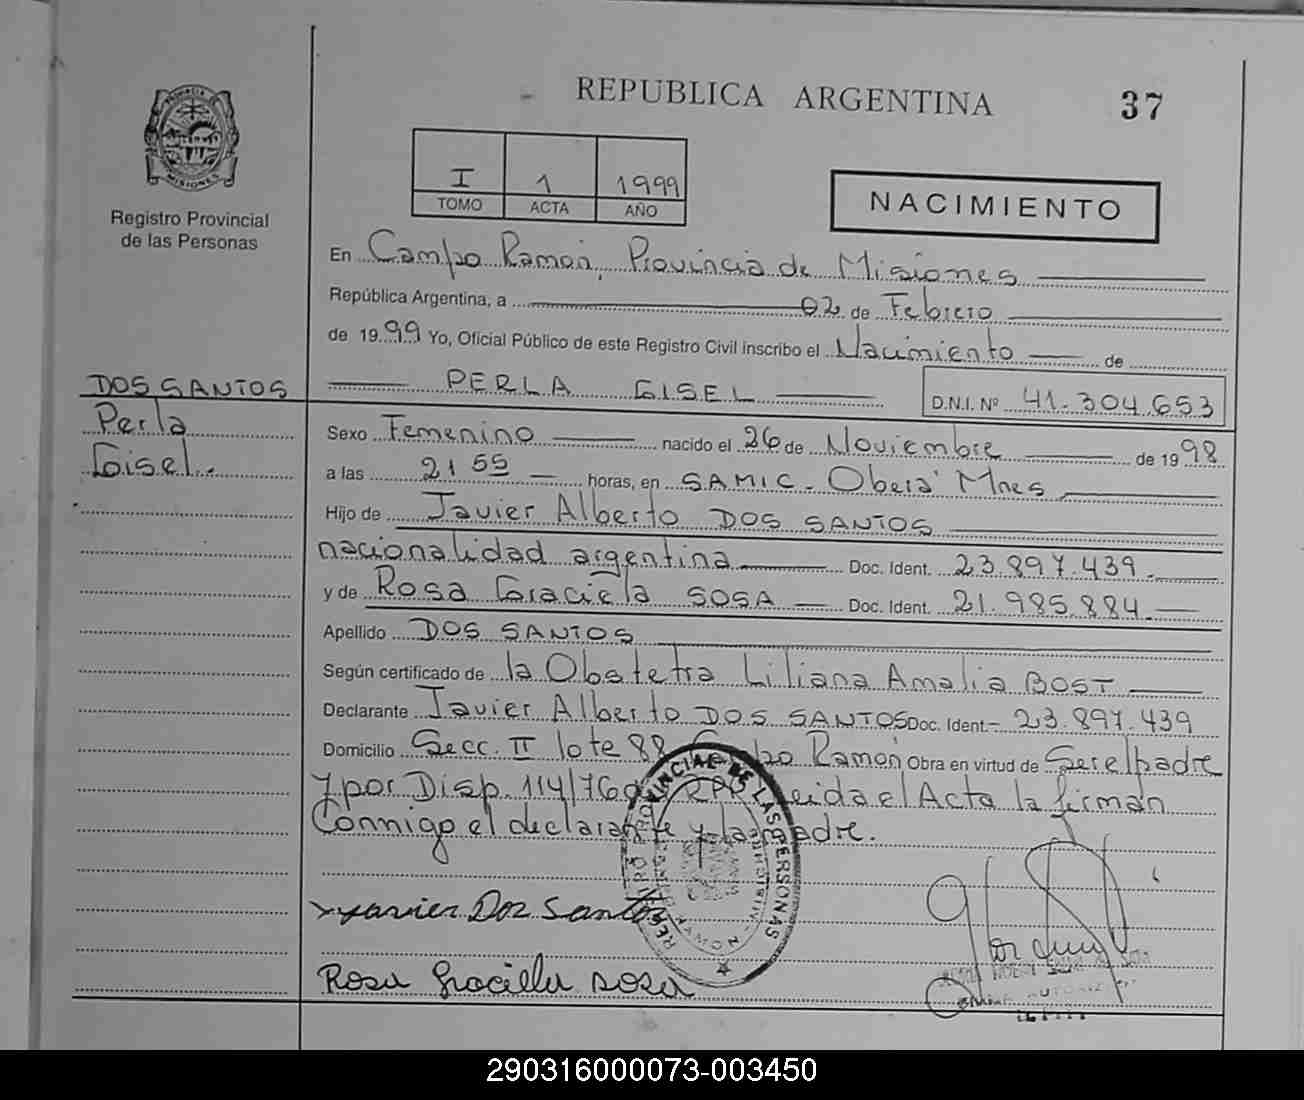 REPUBLICA ARGENTINA
37
PROVINCIA DE
MISIONES
Registro Provincial
de las Personas
I 1 1999
TOMO ACTA AÑO
NACIMIENTO
En Campo Ramon, Provincia de Misiones
República Argentina, a 02 de Febrero
de 1999 Yo, Oficial Público de este Registro Civil inscribo el Nacimiento de
DOS SANTOS
Perla
Gisel.
PERLA GISEL D.N.I. Nº 41.304.653
Sexo Femenino nacido el 26 de Noviembre de 1998
a las 21 55 horas, en SAMIC - Obera' Mnes
Hijo de Javier Alberto DOS SANTOS
nacionalidad argentina Doc. Ident. 23.897.439.
y de Rosa Graciela SOSA Doc. Ident. 21.985.884.
Apellido DOS SANTOS
Según certificado de la Obstetra Liliana Amalia BOST
Declarante Javier Alberto DOS SANTOS Doc. Ident. 23.897.439
Domicilio Secc. II lote 88 Campo Ramon Obra en virtud de Ser el padre
y por Disp. 114/76 RPP leida el Acta la firman
Conmigo el declarante y la madre.
PROVINCIAL DE LAS PERSONAS
xavier Dos Santos
Rosa Graciela sosa
290316000073-003450